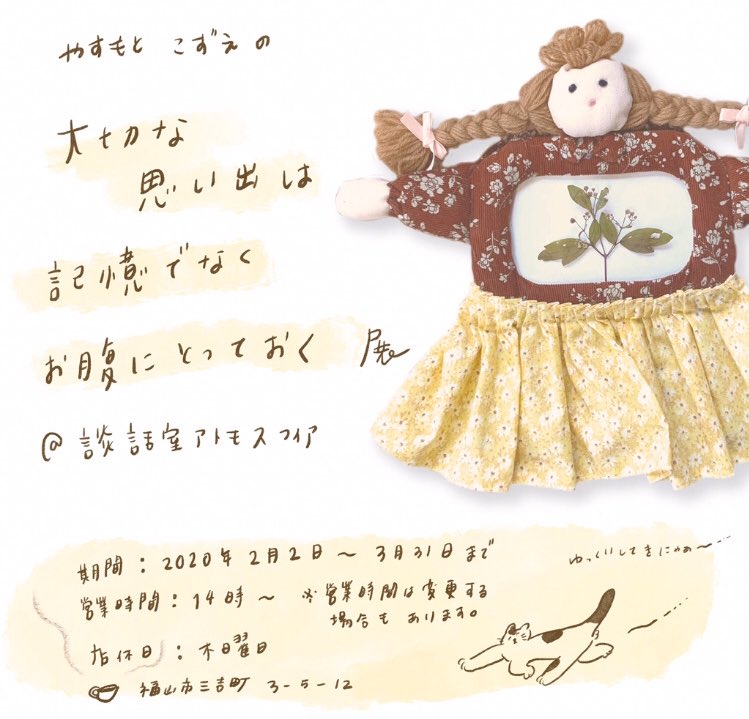 やすもと こずえの
大切な
思い出は
記憶でなく
お腹にとっておく 展
@ 談話室アトモスフィア
期間 : 2020年 2月2日 〜 3月31日まで
営業時間 : 14時 〜 ※営業時間は変更する
場合もあります。
店休日 : 木曜日
福山市三吉町 3-5-12
ゆっくりしてきにゃぁ〜